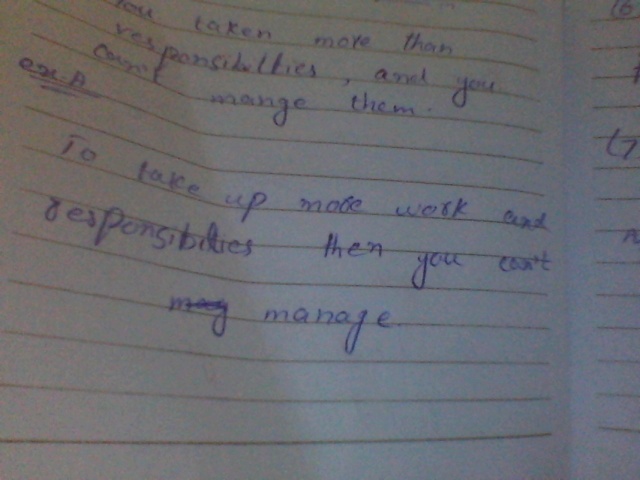 You taken more than
responsibilties, and you
can't mange them.
ex. A
To take up more work and
responsibilties then you can't
manage
(6
(7